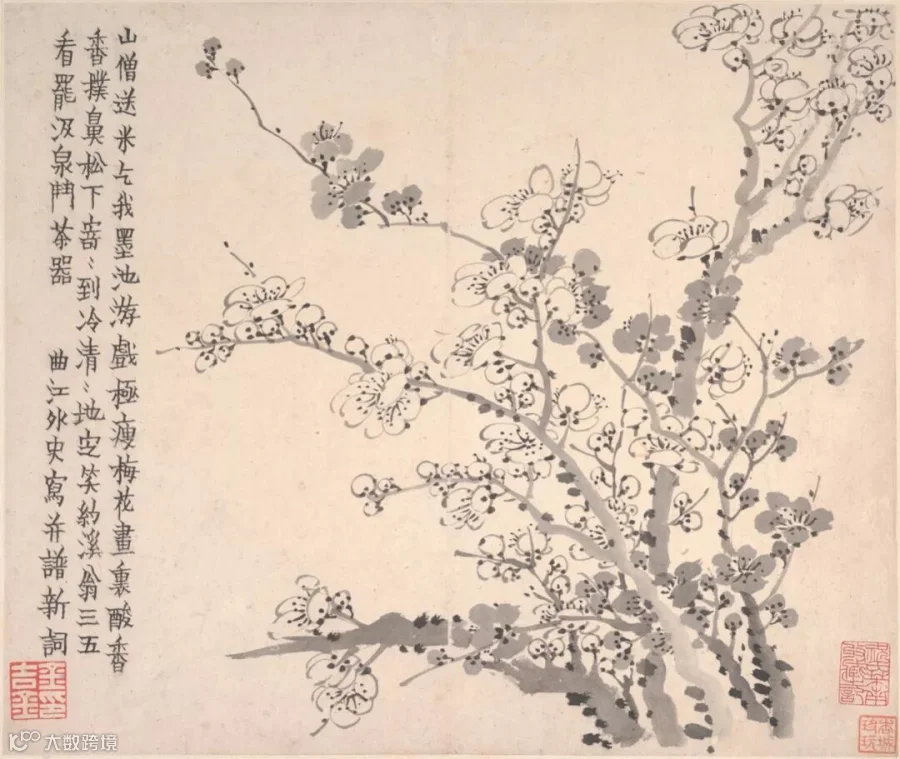 山僧送米乞我墨池游戲極瘦梅花畫裏酸香
香撲鼻松下寄〻到冷清〻地定笑約溪翁三五
看罷汲泉鬥茶器 曲江外史寫并譜新詞
金吉金印
大数跨境